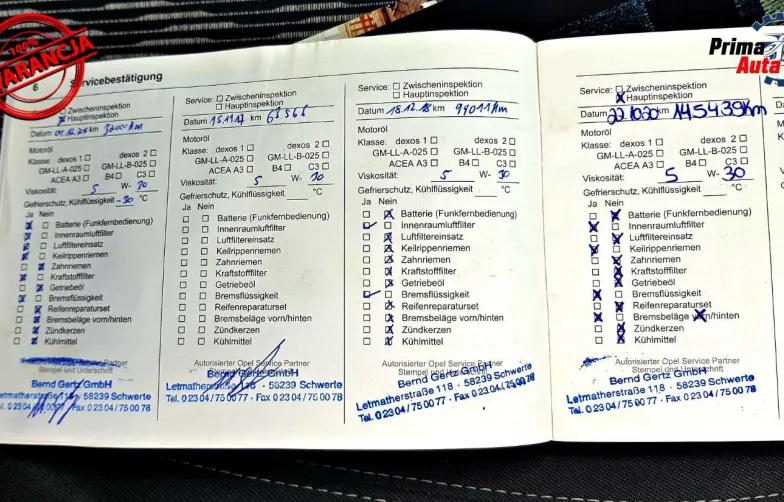 100%
GWARANCJA
Prima
Auta
6
Servicebestätigung
Zwischeninspektion
Hauptinspektion
Datum km
Motoröl
Klasse: dexos 1 dexos 2
GM-LL-A-025 GM-LL-B-025
ACEA A3 B4 C3
Viskosität: 5 W- 30
Gefrierschutz, Kühlflüssigkeit -30 °C
Ja Nein
Batterie (Funkfernbedienung)
Innenraumfilter
Luftfiltereinsatz
Keilrippenriemen
Zahnriemen
Kraftstofffilter
Getriebeöl
Bremsflüssigkeit
Reifenreparaturset
Bremsbeläge vorn/hinten
Zündkerzen
Kühlmittel
Partner
Stempel und Unterschrift
Bernd Gertz GmbH
58239 Schwerte
Tel. 0 23 04 / 75 00 77 · Fax 0 23 04 / 75 00 78
Service: Zwischeninspektion
Hauptinspektion
Datum 15.11.17 km
Motoröl
Klasse: dexos 1 dexos 2
GM-LL-A-025 GM-LL-B-025
ACEA A3 B4 C3
Viskosität: 5 W- 30
Gefrierschutz, Kühlflüssigkeit °C
Ja Nein
Batterie (Funkfernbedienung)
Innenraumfilter
Luftfiltereinsatz
Keilrippenriemen
Zahnriemen
Kraftstofffilter
Getriebeöl
Bremsflüssigkeit
Reifenreparaturset
Bremsbeläge vorn/hinten
Zündkerzen
Kühlmittel
Autorisierter Opel Service Partner
Bernd Gertz GmbH
Letmatherstraße 118 · 58239 Schwerte
Tel. 0 23 04 / 75 00 77 · Fax 0 23 04 / 75 00 78
Service: Zwischeninspektion
Hauptinspektion
Datum 18.12.18 km 94011 km
Motoröl
Klasse: dexos 1 dexos 2
GM-LL-A-025 GM-LL-B-025
ACEA A3 B4 C3
Viskosität: 5 W- 30
Gefrierschutz, Kühlflüssigkeit °C
Ja Nein
Batterie (Funkfernbedienung)
Innenraumfilter
Luftfiltereinsatz
Keilrippenriemen
Zahnriemen
Kraftstofffilter
Getriebeöl
Bremsflüssigkeit
Reifenreparaturset
Bremsbeläge vorn/hinten
Zündkerzen
Kühlmittel
Autorisierter Opel Service Partner
Stempel und Unterschrift
Bernd Gertz GmbH
Letmatherstraße 118 · 58239 Schwerte
Tel. 0 23 04 / 75 00 77 · Fax 0 23 04 / 75 00 78
Service: Zwischeninspektion
Hauptinspektion
Datum 22.10.20 km 145439 km
Motoröl
Klasse: dexos 1 dexos 2
GM-LL-A-025 GM-LL-B-025
ACEA A3 B4 C3
Viskosität: 5 W- 30
Gefrierschutz, Kühlflüssigkeit °C
Ja Nein
Batterie (Funkfernbedienung)
Innenraumfilter
Luftfiltereinsatz
Keilrippenriemen
Zahnriemen
Kraftstofffilter
Getriebeöl
Bremsflüssigkeit
Reifenreparaturset
Bremsbeläge vorn/hinten
Zündkerzen
Kühlmittel
Autorisierter Opel Service Partner
Stempel und Unterschrift
Bernd Gertz GmbH
Letmatherstraße 118 · 58239 Schwerte
Tel. 0 23 04 / 75 00 77 · Fax 0 23 04 / 75 00 78